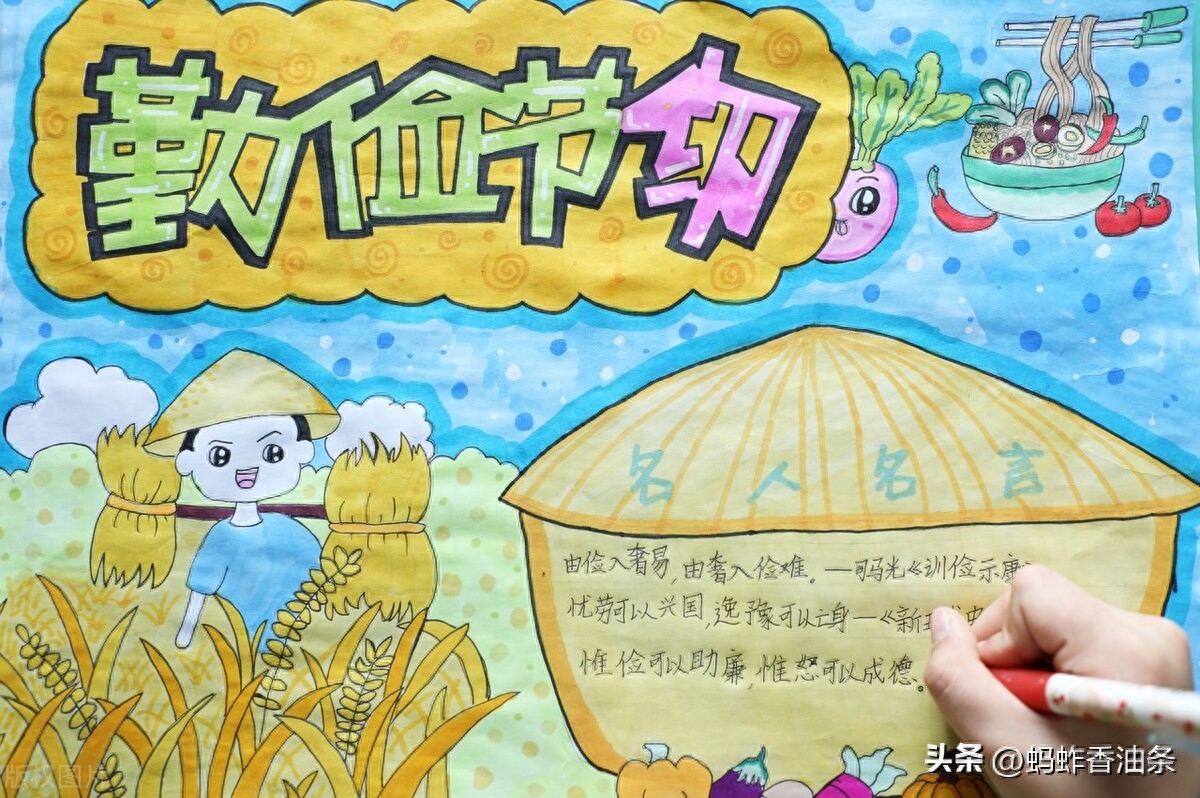 勤俭节约
名人名言
由俭入奢易,由奢入俭难。—司马光《训俭示廉
忧劳可以兴国,逸豫可以亡身—《新
惟俭可以助廉,惟恕可以成德。
版权图片
头条 @蚂蚱香油条